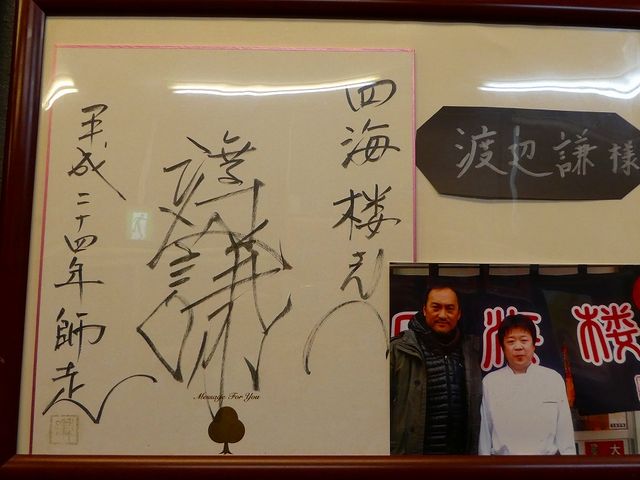 四海楼さんへ
渡辺謙
平成二十四年師走
Message For You
渡辺謙様
海楼
大